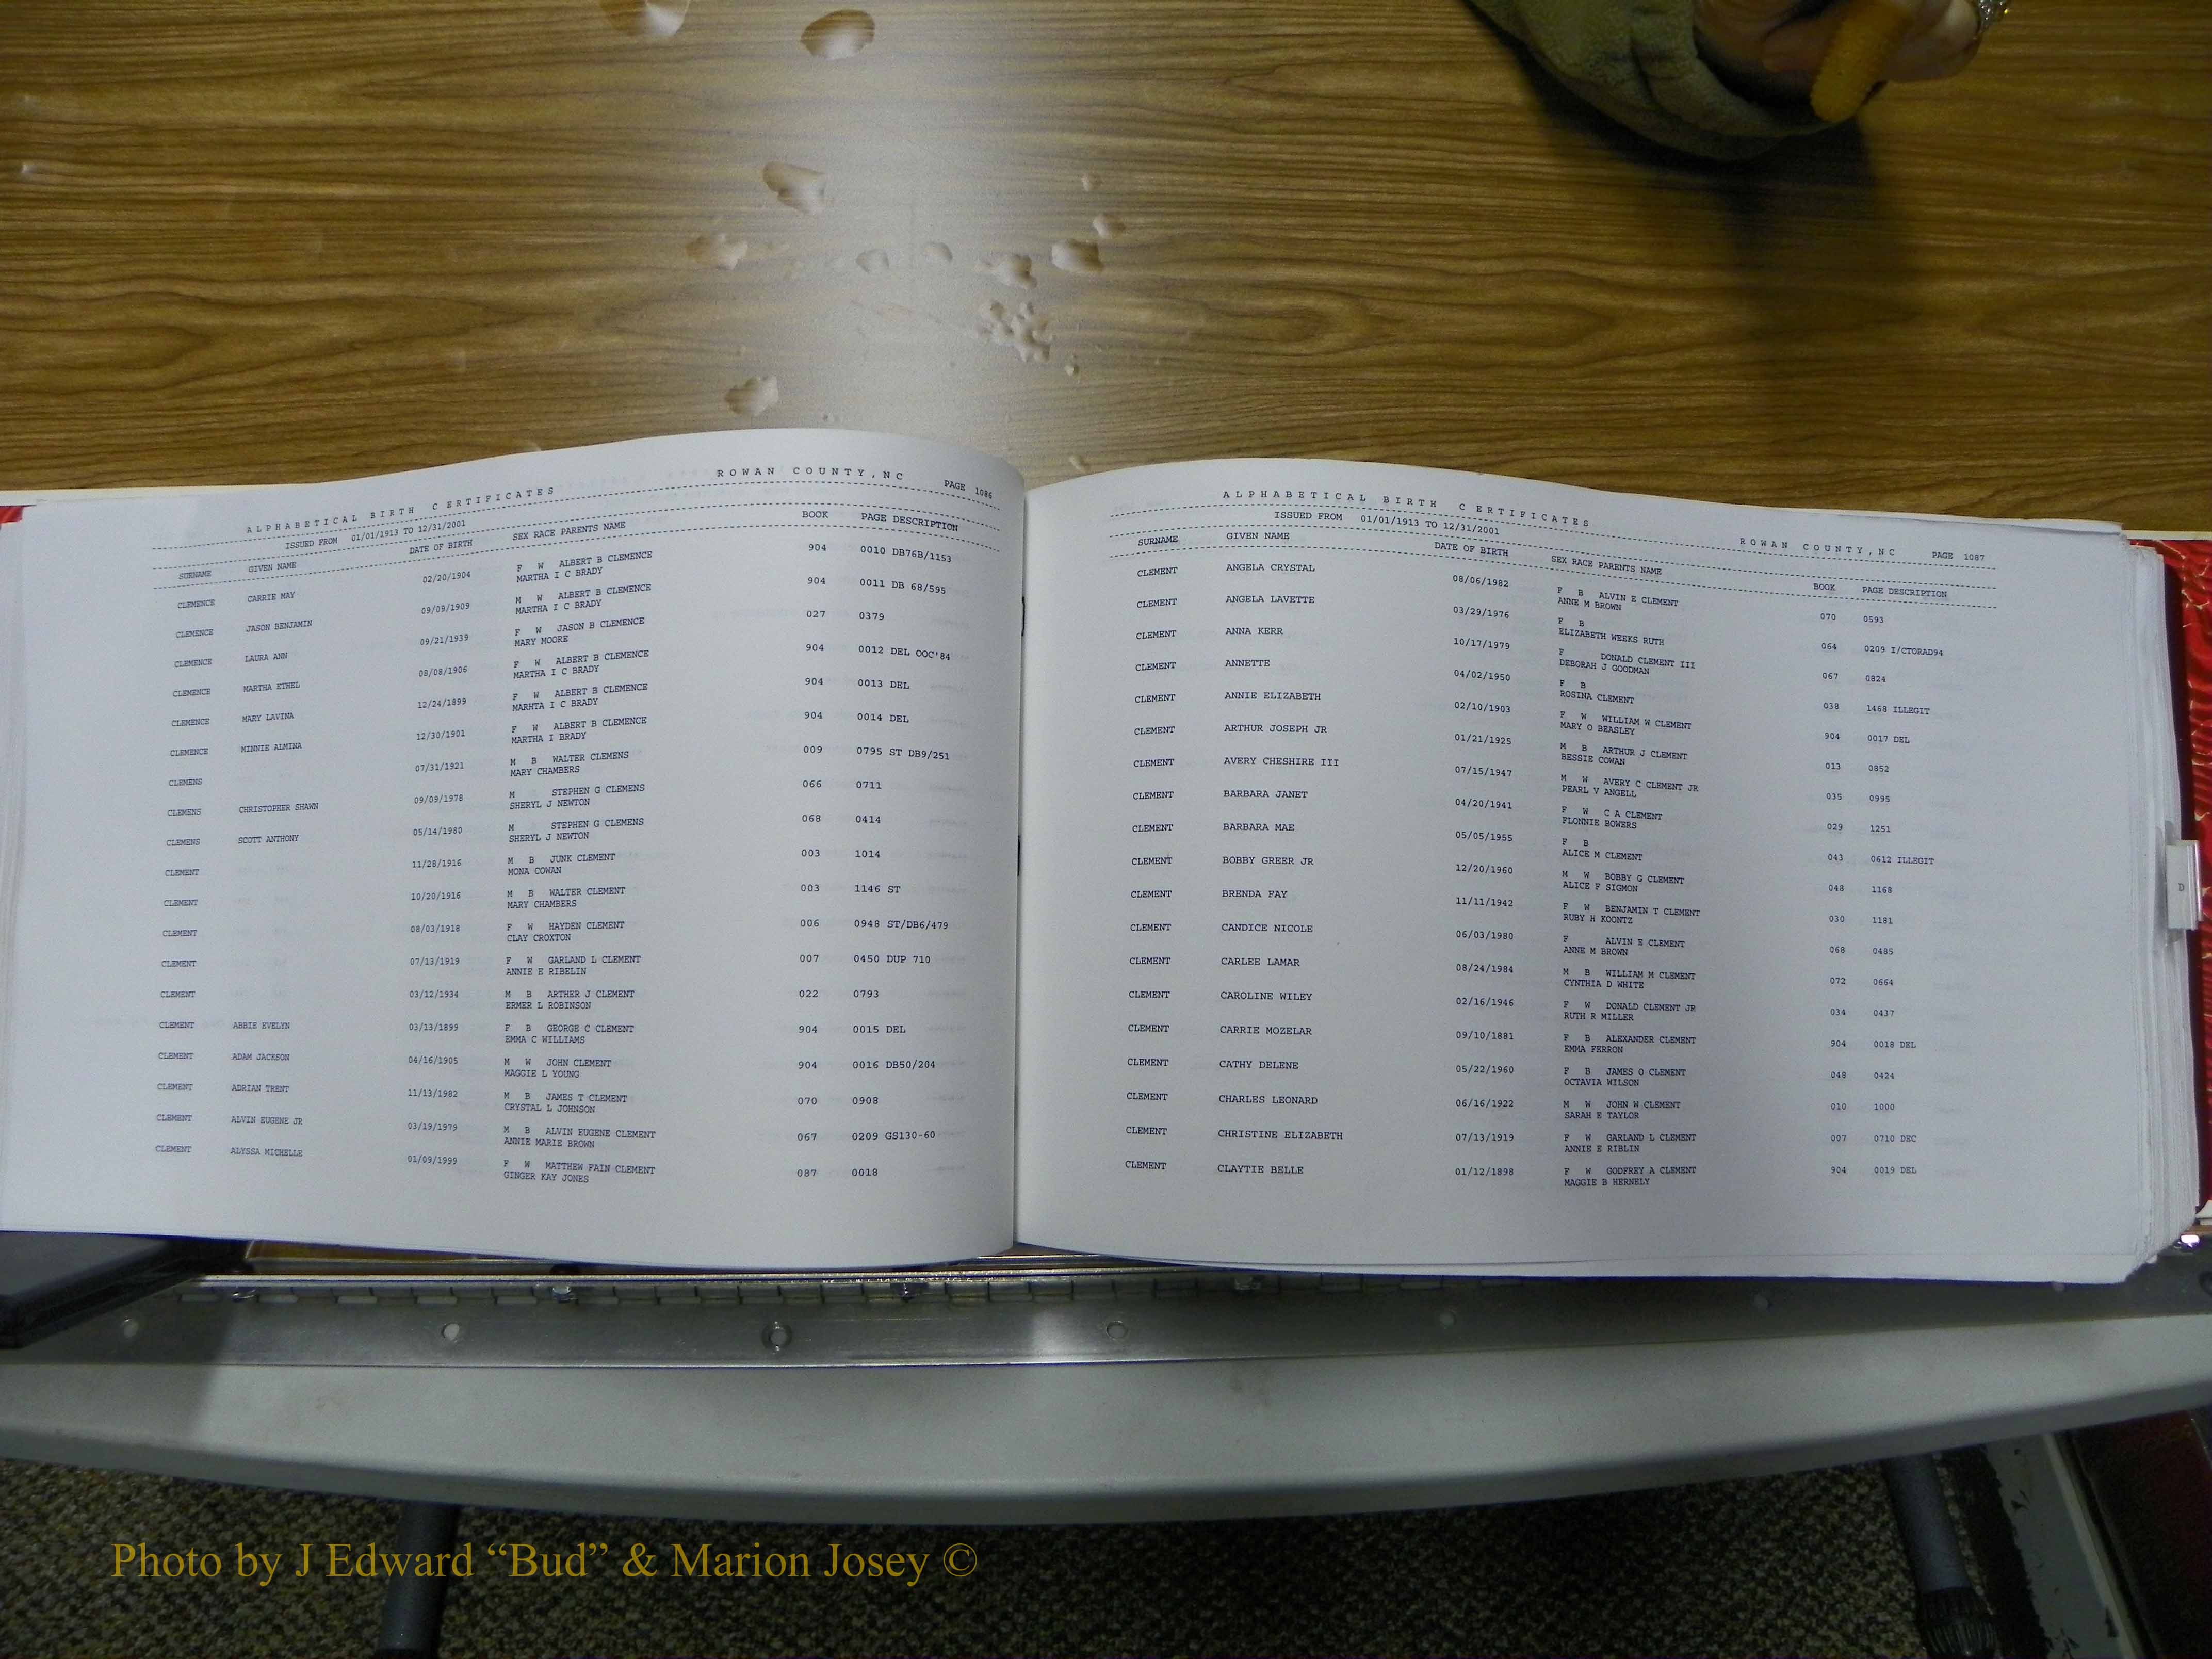 ALPHABETICAL BIRTH CERTIFICATES ROWAN COUNTY, NC PAGE 1086
ISSUED FROM 01/01/1913 TO 12/31/2001
SURNAME GIVEN NAME DATE OF BIRTH SEX RACE PARENTS NAME BOOK PAGE DESCRIPTION
CLEMENCE CARRIE MAY 02/20/1904 F W ALBERT B CLEMENCE 904 0010 DB76B/1153
MARTHA I C BRADY
CLEMENCE JASON BENJAMIN 09/09/1909 M W ALBERT B CLEMENCE 904 0011 DB 68/595
MARTHA I C BRADY
CLEMENCE LAURA ANN 09/21/1939 F W JASON B CLEMENCE 027 0379
MARY MOORE
CLEMENCE MARTHA ETHEL 08/08/1906 F W ALBERT B CLEMENCE 904 0012 DEL OOC'84
MARTHA I C BRADY
CLEMENCE MARY LAVINA 12/24/1899 F W ALBERT B CLEMENCE 904 0013 DEL
MARHTA I C BRADY
CLEMENCE MINNIE ALMINA 12/30/1901 F W ALBERT B CLEMENCE 904 0014 DEL
MARTHA I BRADY
CLEMENS 07/31/1921 M B WALTER CLEMENS 009 0795 ST DB9/251
MARY CHAMBERS
CLEMENS CHRISTOPHER SHAWN 09/09/1978 M STEPHEN G CLEMENS 066 0711
SHERYL J NEWTON
CLEMENS SCOTT ANTHONY 05/14/1980 M STEPHEN G CLEMENS 068 0414
SHERYL J NEWTON
CLEMENT 11/28/1916 M B JUNK CLEMENT 003 1014
MONA COWAN
CLEMENT 10/20/1916 M B WALTER CLEMENT 003 1146 ST
MARY CHAMBERS
CLEMENT 08/03/1918 F W HAYDEN CLEMENT 006 0948 ST/DB6/479
CLAY CROXTON
CLEMENT 07/13/1919 F W GARLAND L CLEMENT 007 0450 DUP 710
ANNIE E RIBELIN
CLEMENT 03/12/1934 M B ARTHER J CLEMENT 022 0793
ERMER L ROBINSON
CLEMENT ABBIE EVELYN 03/13/1899 F B GEORGE C CLEMENT 904 0015 DEL
EMMA C WILLIAMS
CLEMENT ADAM JACKSON 04/16/1905 M W JOHN CLEMENT 904 0016 DB50/204
MAGGIE L YOUNG
CLEMENT ADRIAN TRENT 11/13/1982 M B JAMES T CLEMENT 070 0908
CRYSTAL L JOHNSON
CLEMENT ALVIN EUGENE JR 03/19/1979 M B ALVIN EUGENE CLEMENT 067 0209 GS130-60
ANNIE MARIE BROWN
CLEMENT ALYSSA MICHELLE 01/09/1999 F W MATTHEW FAIN CLEMENT 087 0018
GINGER KAY JONES
ALPHABETICAL BIRTH CERTIFICATES ROWAN COUNTY, NC PAGE 1087
ISSUED FROM 01/01/1913 TO 12/31/2001
SURNAME GIVEN NAME DATE OF BIRTH SEX RACE PARENTS NAME BOOK PAGE DESCRIPTION
CLEMENT ANGELA CRYSTAL 08/06/1982 F B ALVIN E CLEMENT 070 0593
ANNE M BROWN
CLEMENT ANGELA LAVETTE 03/29/1976 F B 064 0209 I/CTORAD94
ELIZABETH WEEKS RUTH
CLEMENT ANNA KERR 10/17/1979 F DONALD CLEMENT III 067 0824
DEBORAH J GOODMAN
CLEMENT ANNETTE 04/02/1950 F B 038 1468 ILLEGIT
ROSINA CLEMENT
CLEMENT ANNIE ELIZABETH 02/10/1903 F W WILLIAM W CLEMENT 904 0017 DEL
MARY O BEASLEY
CLEMENT ARTHUR JOSEPH JR 01/21/1925 M B ARTHUR J CLEMENT 013 0852
BESSIE COWAN
CLEMENT AVERY CHESHIRE III 07/15/1947 M W AVERY C CLEMENT JR 035 0995
PEARL V ANGELL
CLEMENT BARBARA JANET 04/20/1941 F W C A CLEMENT 029 1251
FLONNIE BOWERS
CLEMENT BARBARA MAE 05/05/1955 F B 043 0612 ILLEGIT
ALICE M CLEMENT
CLEMENT BOBBY GREER JR 12/20/1960 M W BOBBY G CLEMENT 048 1168
ALICE F SIGMON
CLEMENT BRENDA FAY 11/11/1942 F W BENJAMIN T CLEMENT 030 1181
RUBY H KOONTZ
CLEMENT CANDICE NICOLE 06/03/1980 F ALVIN E CLEMENT 068 0485
ANNE M BROWN
CLEMENT CARLEE LAMAR 08/24/1984 M B WILLIAM M CLEMENT 072 0664
CYNTHIA D WHITE
CLEMENT CAROLINE WILEY 02/16/1946 F W DONALD CLEMENT JR 034 0437
RUTH R MILLER
CLEMENT CARRIE MOZELAR 09/10/1881 F B ALEXANDER CLEMENT 904 0018 DEL
EMMA FERRON
CLEMENT CATHY DELENE 05/22/1960 F B JAMES O CLEMENT 048 0424
OCTAVIA WILSON
CLEMENT CHARLES LEONARD 06/16/1922 M W JOHN W CLEMENT 010 1000
SARAH E TAYLOR
CLEMENT CHRISTINE ELIZABETH 07/13/1919 F W GARLAND L CLEMENT 007 0710 DEC
ANNIE E RIBLIN
CLEMENT CLAYTIE BELLE 01/12/1898 F W GODFREY A CLEMENT 904 0019 DEL
MAGGIE B HERNELY
D
Photo by J Edward “Bud” & Marion Josey ©